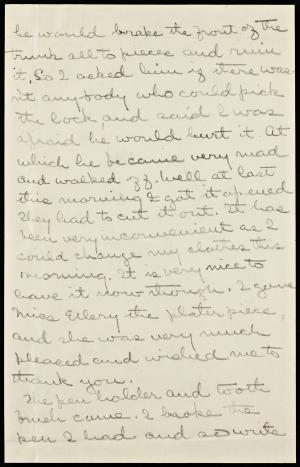 he would brake the front of the
trunk all to pieces and ruin
it. So I asked him if there was-
n't any,body who could pick
the lock, and said I was
afraid he would hurt it. At
which he became very mad
and walked off. Well at last
this morning I got it opened
They had to cut it out. It has
been very inconvenient as I
could change my clothes this
morning. It is very nice to
have it now though. I gave
Miss Ellery the plater piece,
and she was very much
pleased and wished me to
thank you.
The pen holder and tooth
brush came. I broke the
pen I had and so write